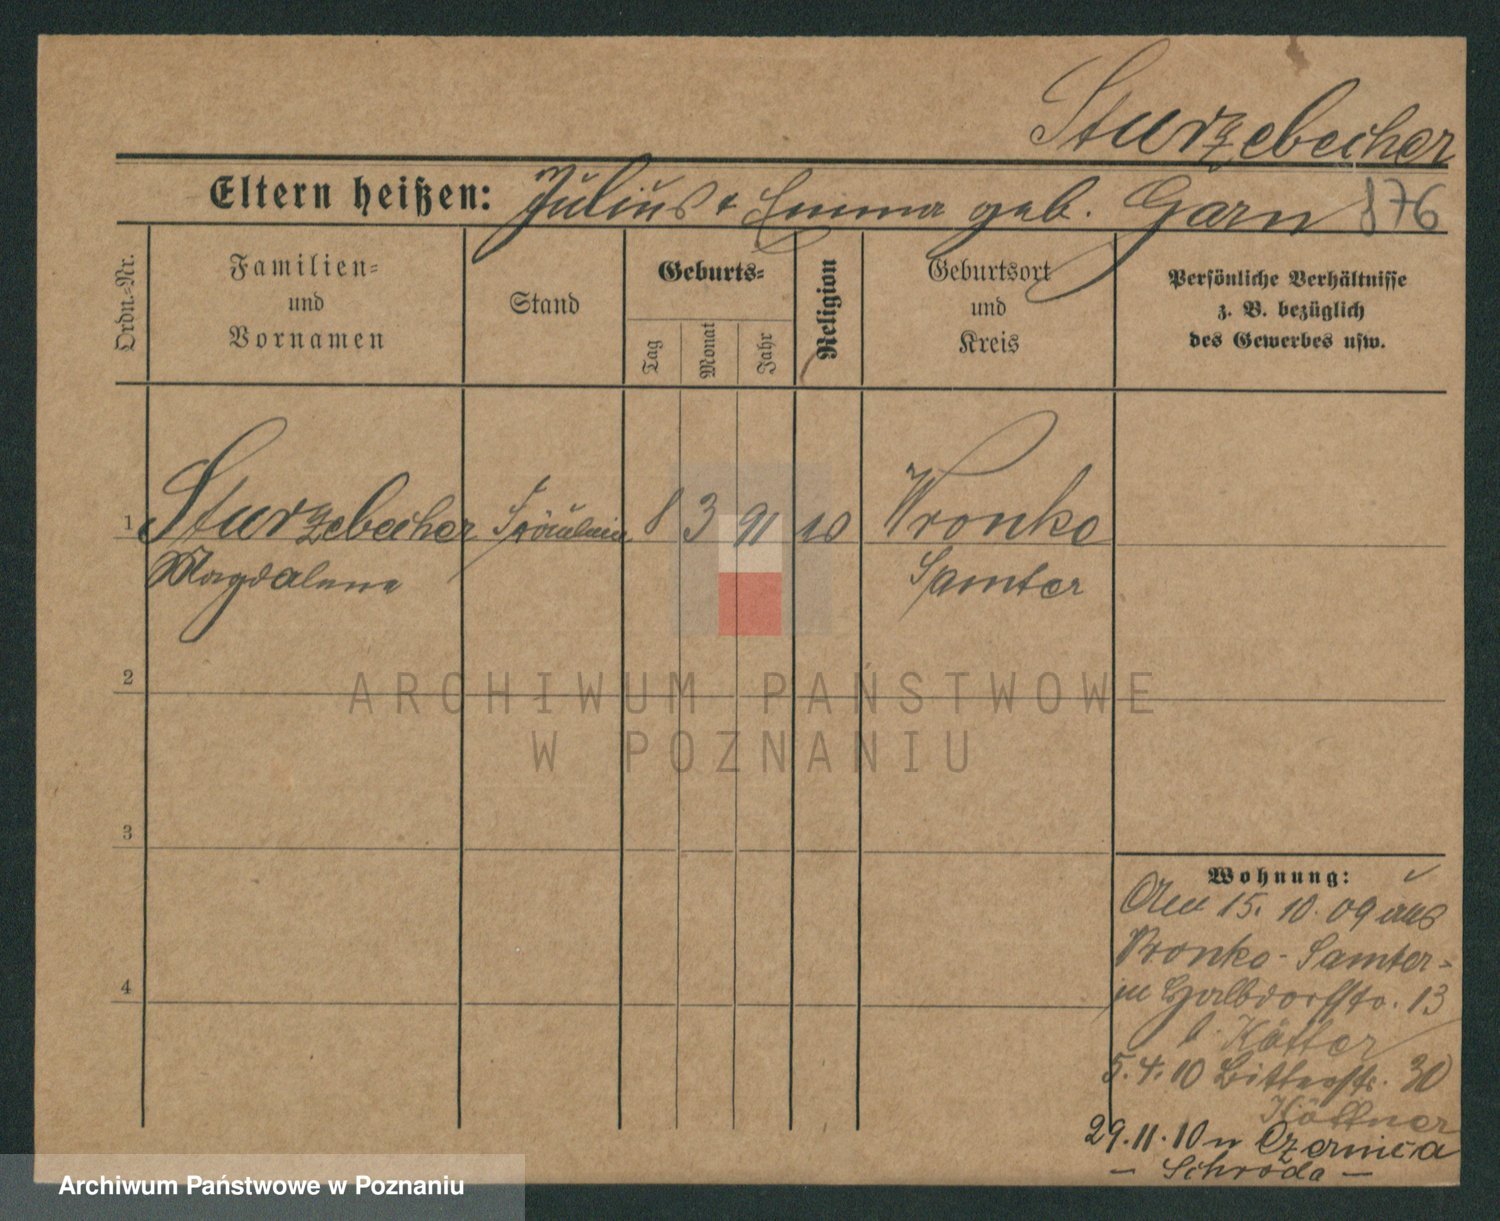 Sturzebecher
Eltern heißen: Julius & Emma geb. Garn 876
Ordn.-Nr.
Familien-
und
Vornamen
Stand
Geburts-
Tag
Monat
Jahr
Religion
Geburtsort
und
Kreis
Persönliche Verhältnisse
z. B. bezüglich
des Gewerbes usw.
1 Sturzebecher Fräulein 8 3 91 Wronke
Magdalena Samter
2
ARCHIWUM PAŃSTWOWE
W POZNANIU
3
4
Wohnung:
15. 10. 09 aus
Wronke - Samter
in 13
b.
5.4.10 30
29.11.10 n Czernica
- Schroda -
Archiwum Państwowe w Poznaniu